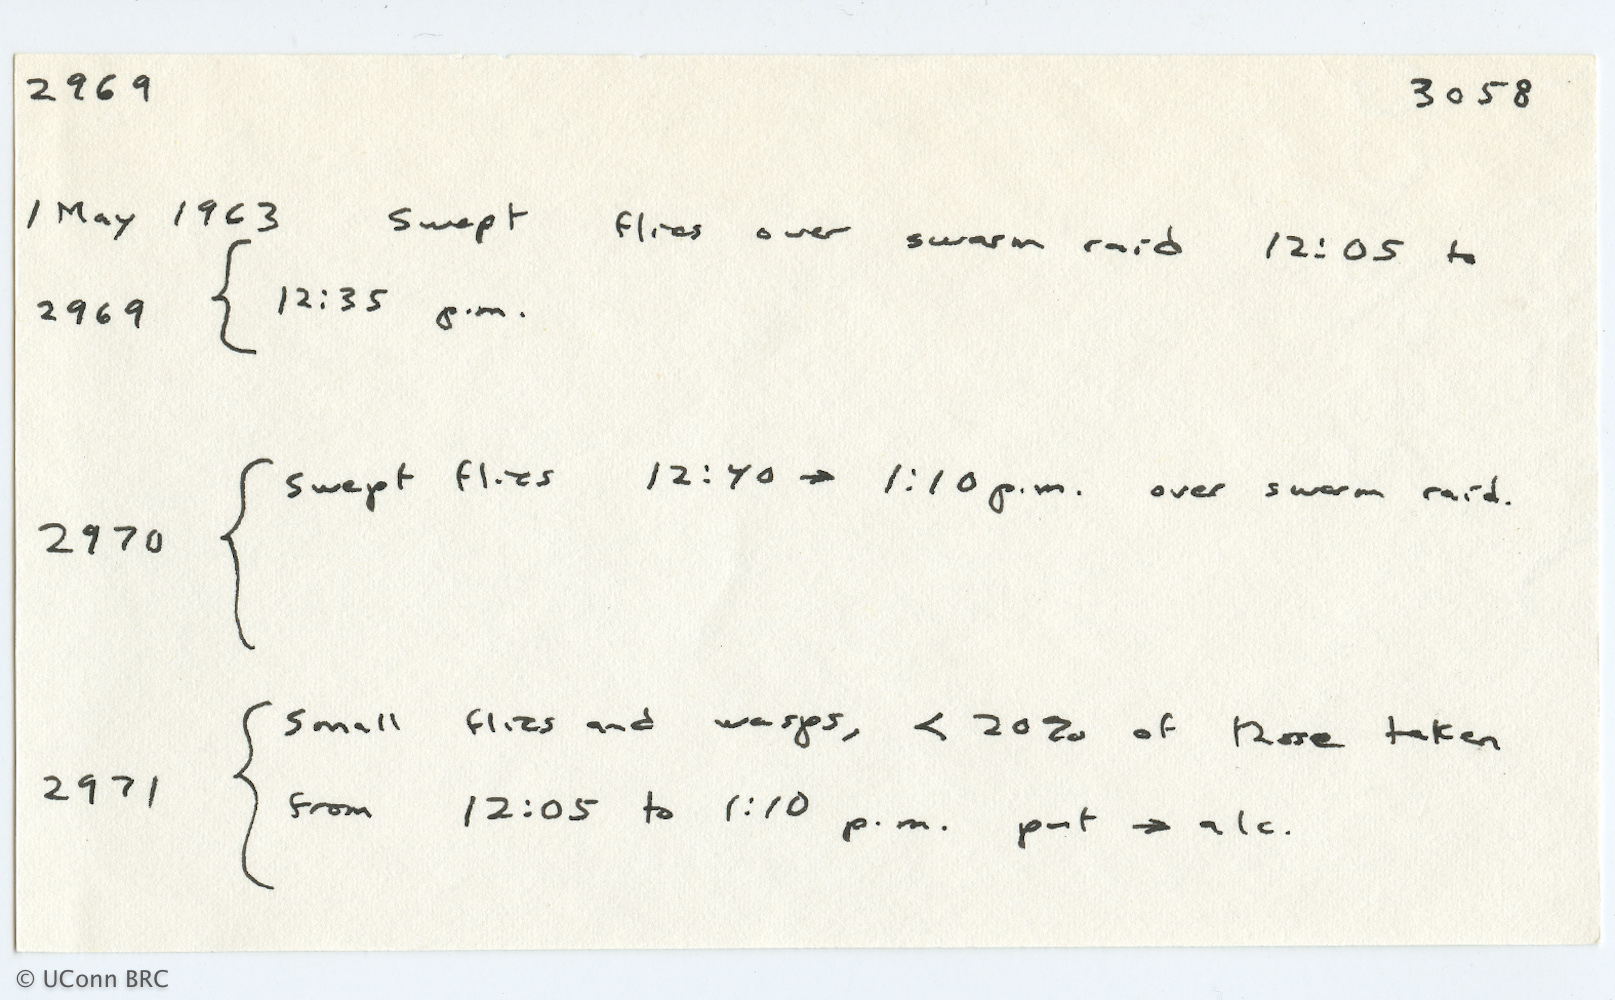 2969 3058
1 May 1963 Swept flies over swarm raid 12:05 to
2969 { 12:35 p.m.
2970 { Swept flies 12:40 → 1:10 p.m. over swarm raid.
Small flies and wasps, < 20% of those taken
2971 { from 12:05 to 1:10 p.m. put → alc.
© UConn BRC